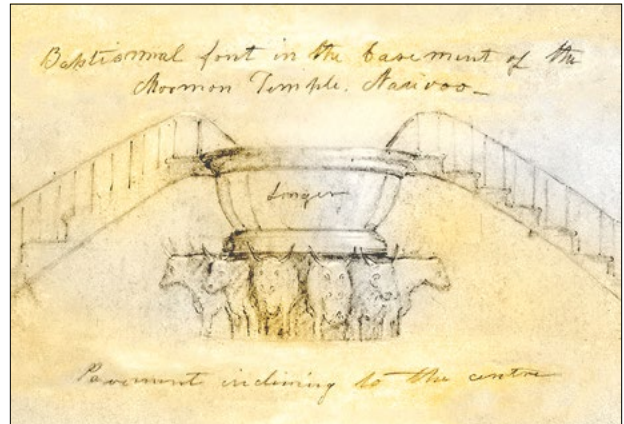 Baptismal font in the basement of the
Mormon Temple. Nauvoo_
Longer
Pavement inclining to the centre